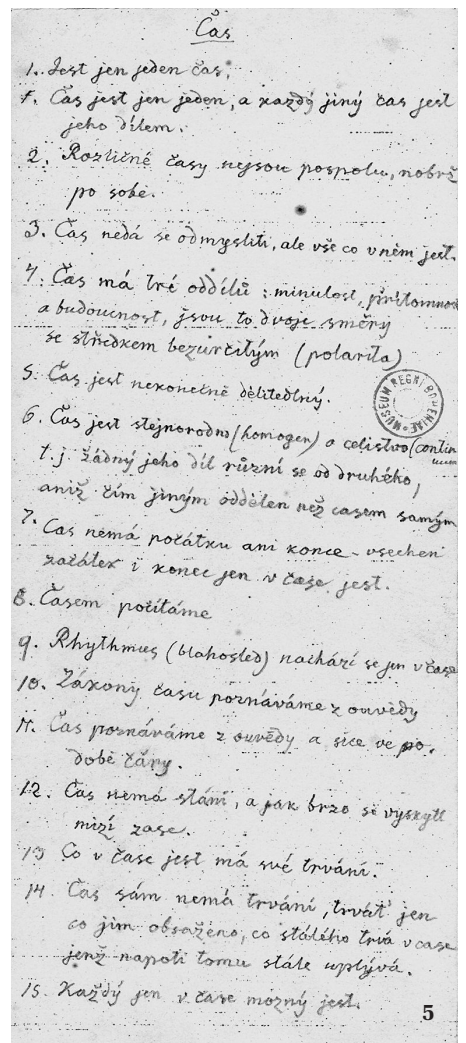 Čas
1. Jest jen jeden čas.
1. Čas jest jen jeden, a každý jiný čas jest
jeho dílem.
2. Rozličné časy nejsou pospolu, nobrž
po sobě.
3. Čas nedá se odmysliti, ale vše co v něm jest.
4. Čas má tré oddílů: minulost, přítomnost
a budoucnost, jsou to dvoje směry
se středkem bezurčitým (polarita)
5. Čas jest nekonečně dělitedlný.
MUSEUM REGNI BOHEMIAE
6. Čas jest stejnorodno (homogen) a celistvo (contin
uum
t.j. žádný jeho díl různí se od druhého,
aniž čím jiným oddělen než časem samým
7. Čas nemá počátku ani konce – všechen
začátek i konec jen v čase jest.
8. Časem počítáme
9. Rhythmus (blahosled) nachází se jen v čase
10. Zákony času poznáváme z ouvědy
11. Čas poznáváme z ouvědy a sice ve po-
době čáry.
12. Čas nemá stání, a jak brzo se vyskytl
mizí zase.
13 Co v čase jest má své trvání.
14 Čas sám nemá trvání, trváť jen
co jím obsaženo, co stálého trvá v čase
jenž napoti tomu stále uplývá.
15. Každý jen v čase možný jest.
5